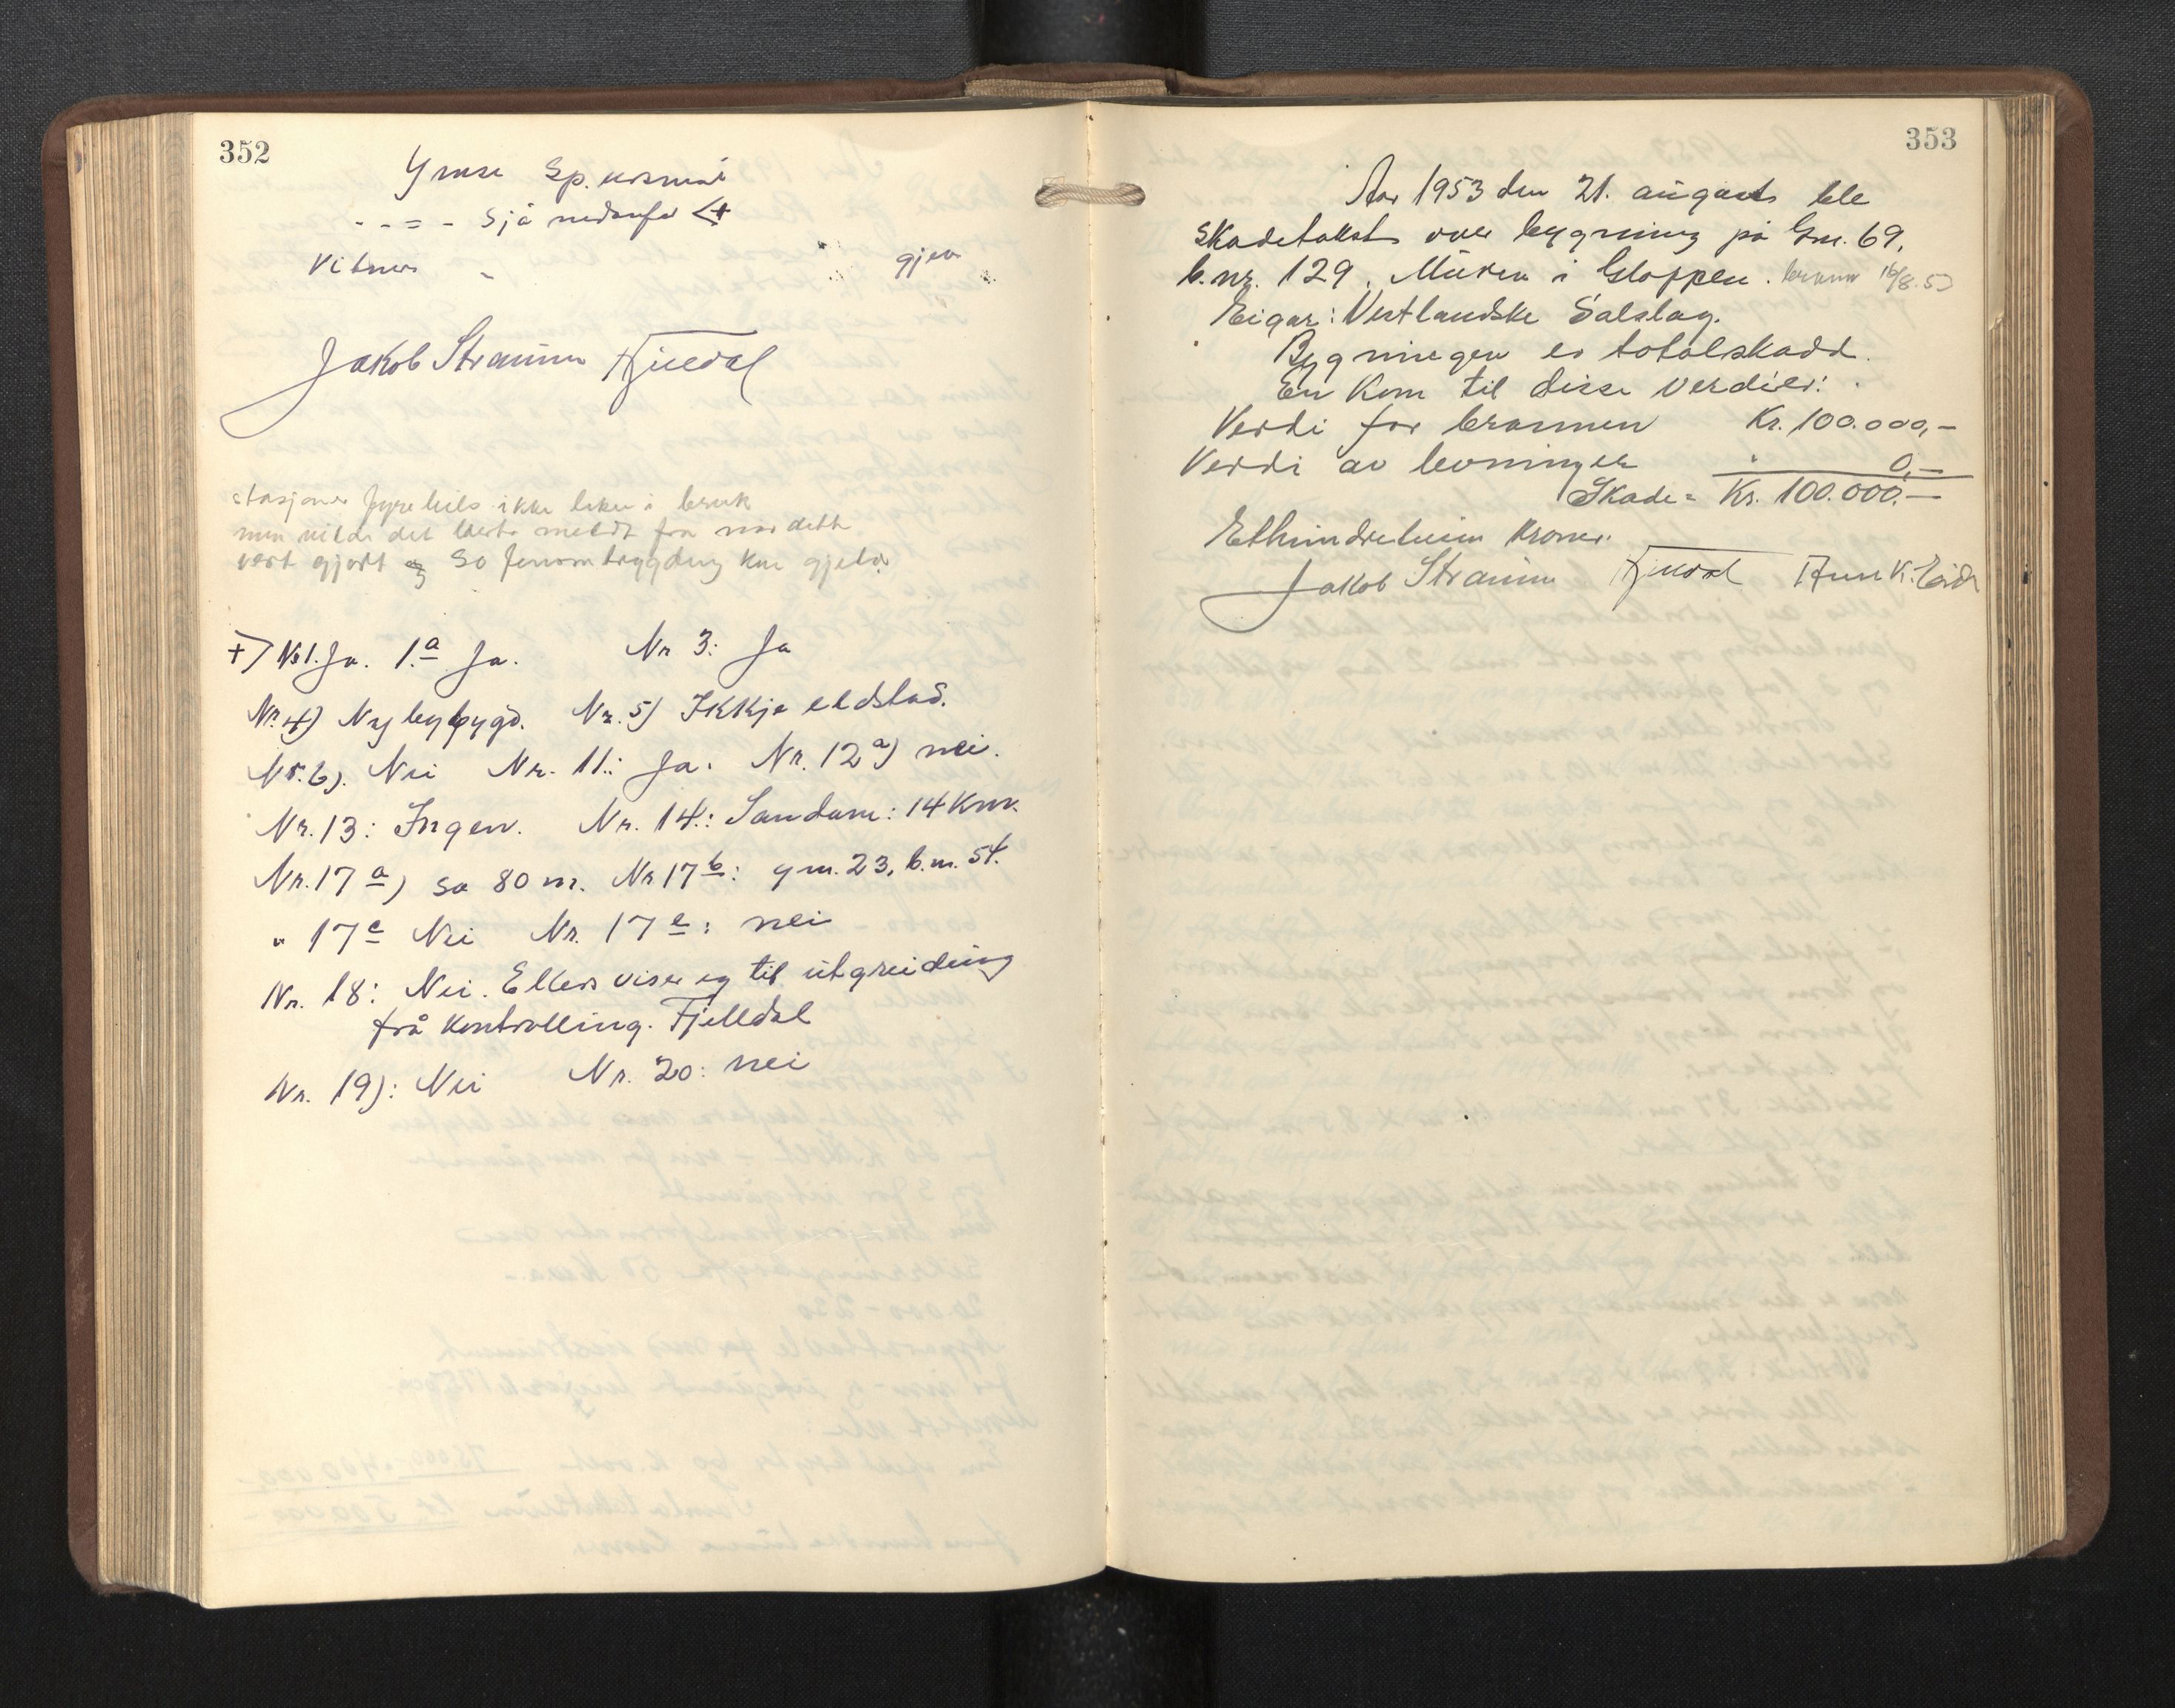 352
Ymse Sp.ursmål
- - = - Sjå nedanfor <+
Vitner - gjev
Jakob Straume Fjelldal
stasjonen fyrebils ikke teken i bruk
men vilde det verta meldt fra når dette
vert gjort og so
+) Nr 1. Ja. 1.a Ja. Nr 3: Ja
Nr. 4) Ny bygd. Nr. 5) Ikkje eldstad.
Nr. 6). Nei Nr. 11.: Ja. Nr. 12 a) nei.
Nr. 13: Ingen. Nr. 14.: Sandane: 14 Km.
Nr. 17 a) sa 80 m. Nr 17 b: gnr. 23, b.nr. 54.
" 17 c Nei Nr. 17 e: nei
Nr. 18: Nei. Ellers viser eg til utgreiding
frå Kontrolling. Fjelldal
Nr. 19): Nei Nr. 20: nei
353
Aar 1953 den 21. august ble
skadetakst over bygning på Gnr. 69,
b.nr. 129, Muren i Gloppen. brann 16/8.53
Eigar: Vestlandske Salslag.
Bygningen er totalskadd.
En Kom til disse verdier:
Verdi før brannen Kr. 100.000,-
Verdi av levninger " 0,-
Skade = Kr. 100.000.-
Ethundretusen Kroner.
Jakob Straume Fjelldal K. Eide